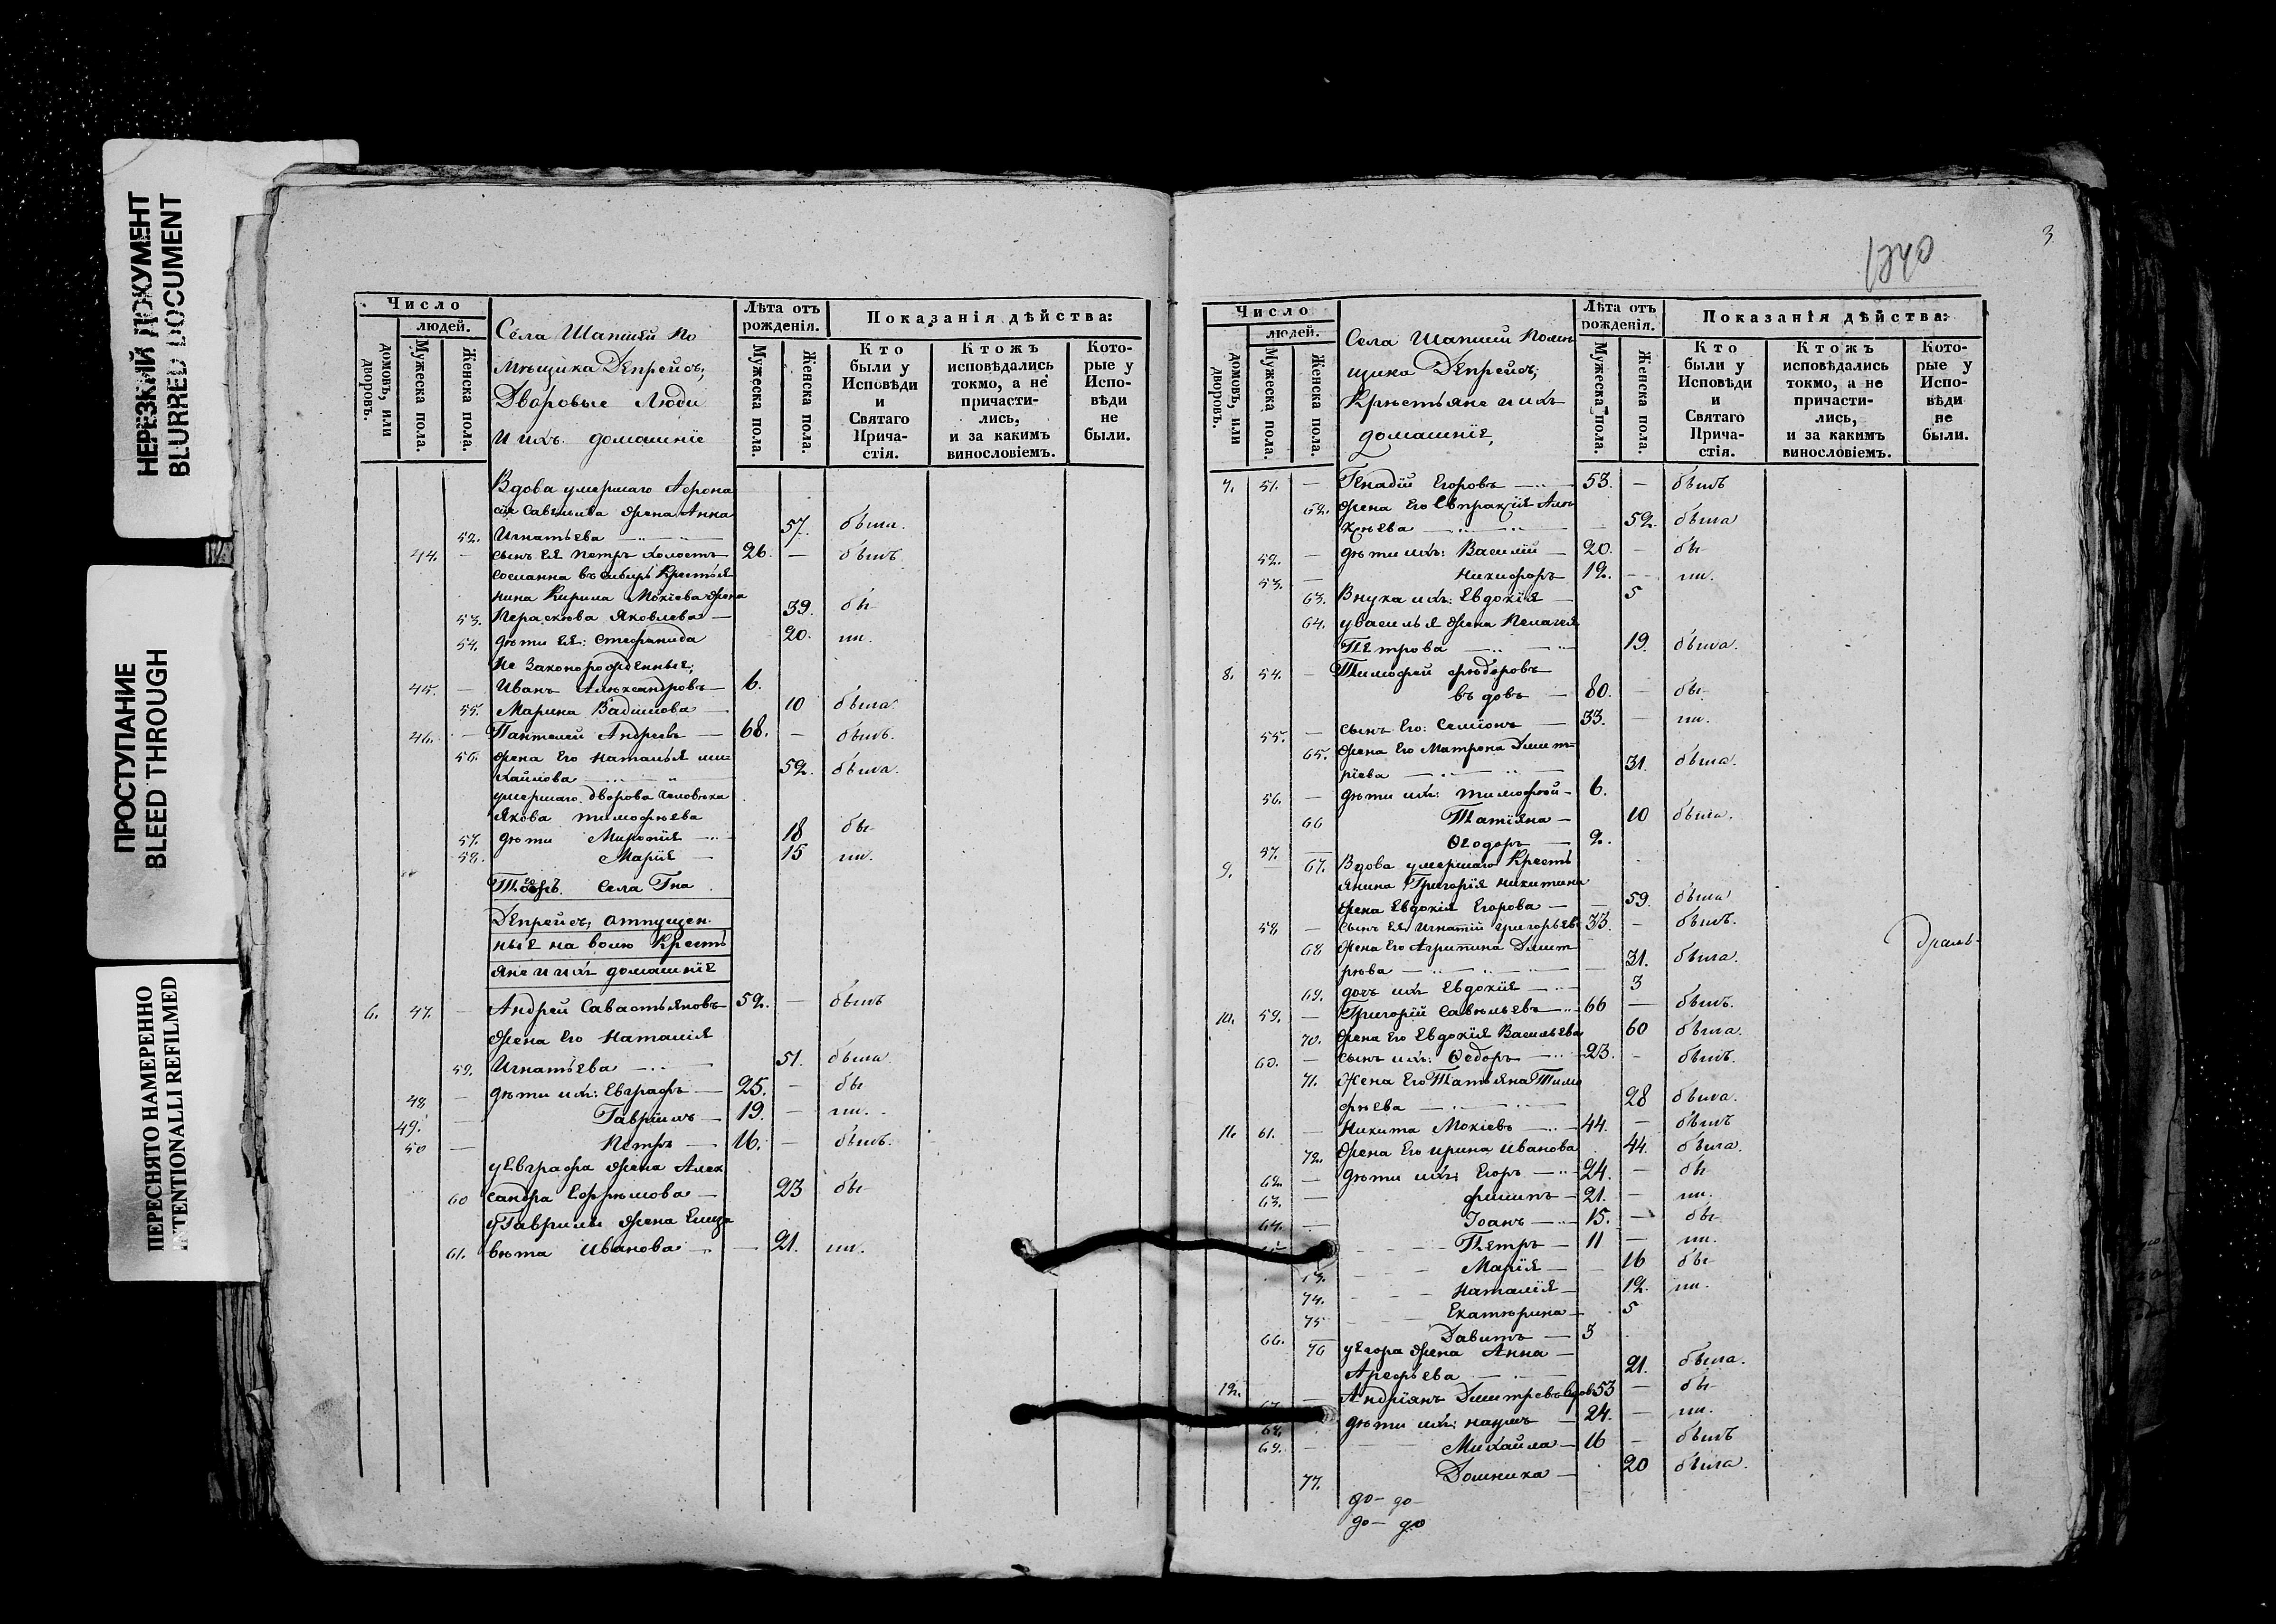 НЕРЕЗКИЙ ДОКУМЕНТ
BLURRED DOCUMENT
ПРОСТУПАНИЕ
BLEED THROUGH
ПЕРЕСНЯТО НАМЕРЕННО
INTENTIONALLI REFILMED
Число
людей.
домовъ, или дворовъ.
Мужеска пола.
Женска пола.
Села Шапшей по
мѣщика Депрейсъ,
Дворовые люди
и ихъ домашніе
Лѣта отъ рожденія.
Мужеска пола.
Женска пола.
Показанія дѣйства:
Кто были у Исповѣди и Святаго Прича-стія.
Ктожъ исповѣдались токмо, а не причасти-лись, и за какимъ винословіемъ.
Кото-рые у Испо-вѣди не были.
Вдова умершаго Афона
сія Савельева жена Анна
52. Игнатьева 57. была.
44. — сынъ ея Петръ холостъ 26. — былъ
сосланна въ Сибирь Крестья
нина Кирила Мокіева жена
53. Параскова Яковлева — 39. бы
54. дѣти ея: Стефанида 20. ли.
Не законорожденные;
45. — Иванъ Александровъ — 6.
55. Марина Вадимова — 10 была.
46. — Пантелей Андреевъ — 68. — былъ.
56. жена его Наталья ми=
хайлова 59. была.
умершаго дворова человѣка
Якова Тимофѣева
57. дѣти Миропія 18 бы
58. Марія — 15 ли.
Села Гна
Депрейсъ, отпущен.
ные на волю Кресть
яне и ихъ домашніе
6. 47. — Андрей Савостьяновъ 52. — былъ
жена его Наталія
59. Игнатьева 51. была
48 — дѣти ихъ: Евграфъ — 25. — бы
49. — Гавріилъ — 19. — ли.
50 — Петръ — 16. — былъ.
у Евграфа жена Алек
60 сандра Ефремова — 23 бы
у Гаврилы жена Елиза
61. вета Иванова — 21. ли.
1240
3
Число
людей.
домовъ, или дворовъ.
Мужеска пола.
Женска пола.
Села Шапшей помѣ
щика Депрейсъ;
Крѣстьяне и ихъ
домашніе,
Лѣта отъ рожденія.
Мужеска пола.
Женска пола.
Показанія дѣйства:
Кто были у Исповѣди и Святаго Прича-стія.
Ктожъ исповѣдались токмо, а не причасти-лись, и за какимъ винословіемъ.
Кото-рые у Испо-вѣди не были.
7. 51. — Генадій Егоровъ 53. — былъ
62. жена его Евпраксія Але
ксѣева 52. была
52. — дѣти ихъ: Василій — 20. — бы
53. — Никифоръ 12. — ли.
63. Внука ихъ: Евдокія — 5
64. у Василья жена Пелагея
Петрова 19. была.
8. 54. — Тимофей Фѣдоровъ
въ довъ — 80. — бы
55. — сынъ его: Семіонъ — 33. — ли.
65. жена его Матрона Дмит=
ріева 31. была.
56. — дѣти ихъ: Тимофей — 6.
66 Татіяна — 10 была.
57. — Ѳеодоръ — 2.
9. — 67. Вдова умершаго Кресть
янина Григорія Никитина
жена Евдокія Егорова — 59. была
58. — сынъ ея Игнатій Григорьевъ 33. — былъ.
68 жена его Агрипина Дмит
рѣва 31. была.
69. дочь ихъ Евдокія 3
10. 59. — Григорій Савельевъ 66 — былъ.
70. жена его Евдокія Васильева 60 была
60. — сынъ ихъ: Ѳедоръ 23. — былъ.
71. жена его Татьяна Тимо
фѣева 28 была.
11. 61. — Никита Мокіевъ 44. — былъ
72. жена его Ирина Иванова 44. была.
62. — дѣти ихъ: Егоръ 24. — бы
63. — Филипъ — 21. — ли.
64. — Іоанъ 15. — бы
Петръ — 11 — ли.
Марія — 16 бы
74. Наталія — 12. ли.
75 Екатерина — 5
66. — Давитъ — 3
76 у Егора жена Анна —
Арефьева 21. была.
12. — Андріянъ Дмитревъ вдовъ 53 — бы
68. дѣти ихъ: Наумъ — 24. — ли.
69. — Михайла — 16 — былъ
77. Домника — 20 была.
до — до
до — до